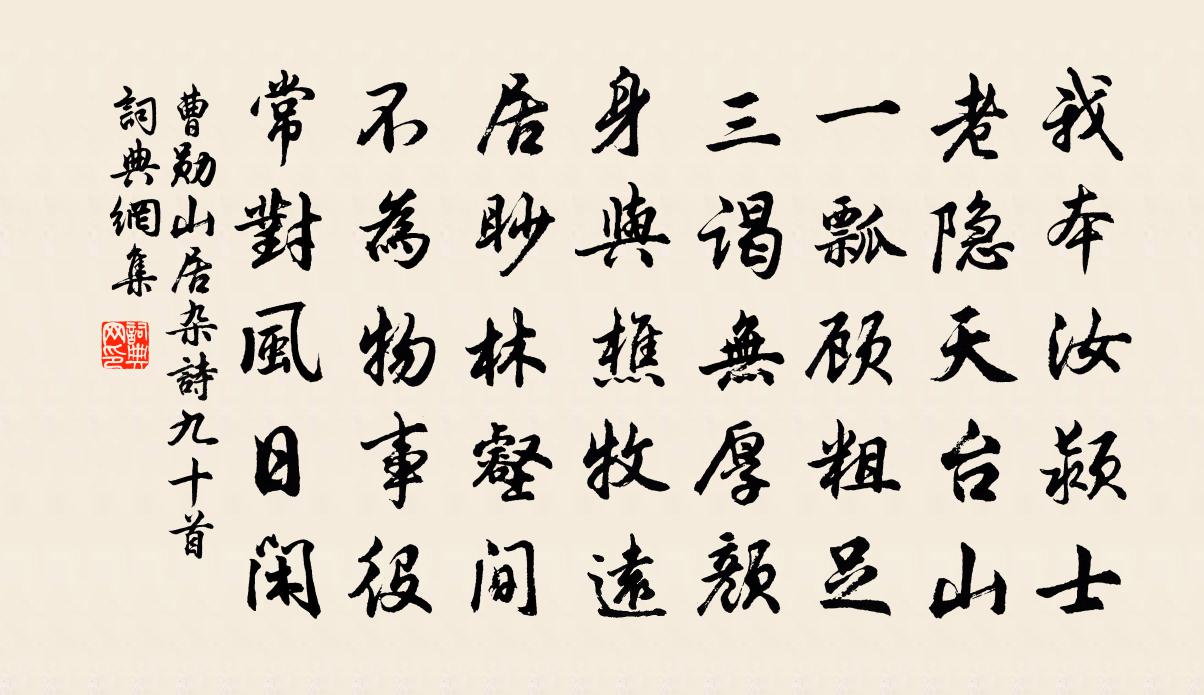 我本汝潁士
老隱天台山
一瓢顧粗足
三謁無厚顏
身與樵牧遠
居眇林壑間
不為物事役
常對風日閑
曹勛山居杂詩九十首
詞典網集
詞典网印